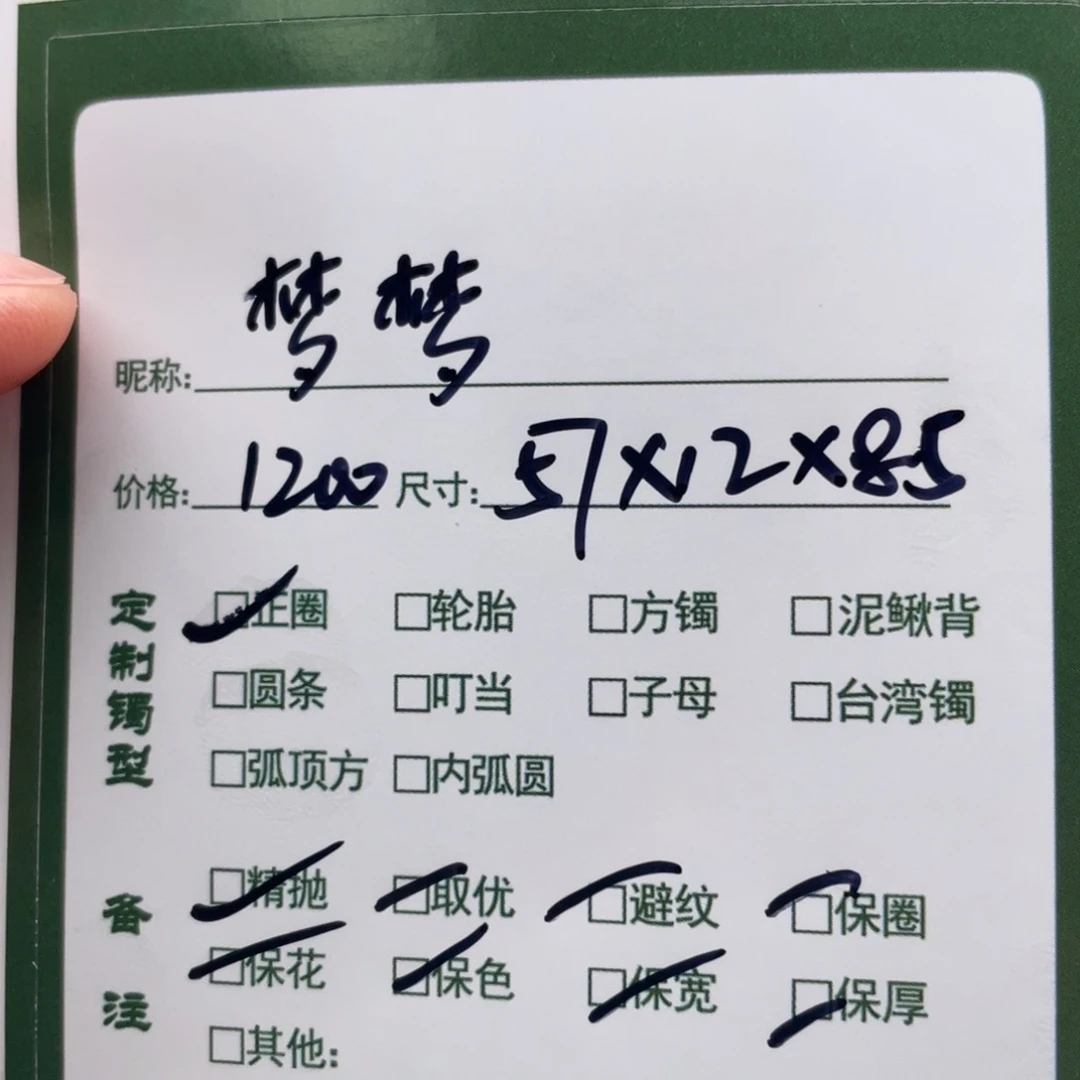 昵称:梦梦
价格:1200 尺寸:57×12×8.5
定制镯型
☑正圈 □轮胎 □方镯 □泥鳅背
□圆条 □叮当 □子母 □台湾镯
□弧顶方 □内弧圆
备注
☑精抛 ☑取优 ☑避纹 ☑保圈
☑保花 ☑保色 ☑保宽 ☑保厚
□其他: